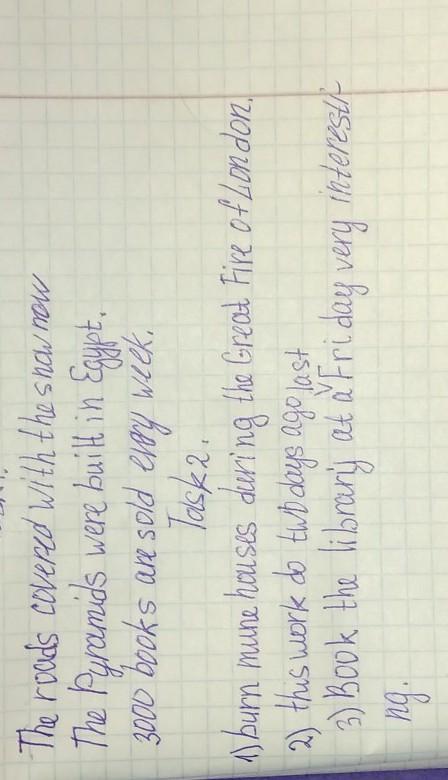 The roads covered with the snow now
The Pyramids were built in Egypt.
3000 books are sold every week.
Task 2.
1) burn mune houses during the Great Fire of London.
2) this work do two days ago last
3) Book the library at a Friday very interesti
ng.